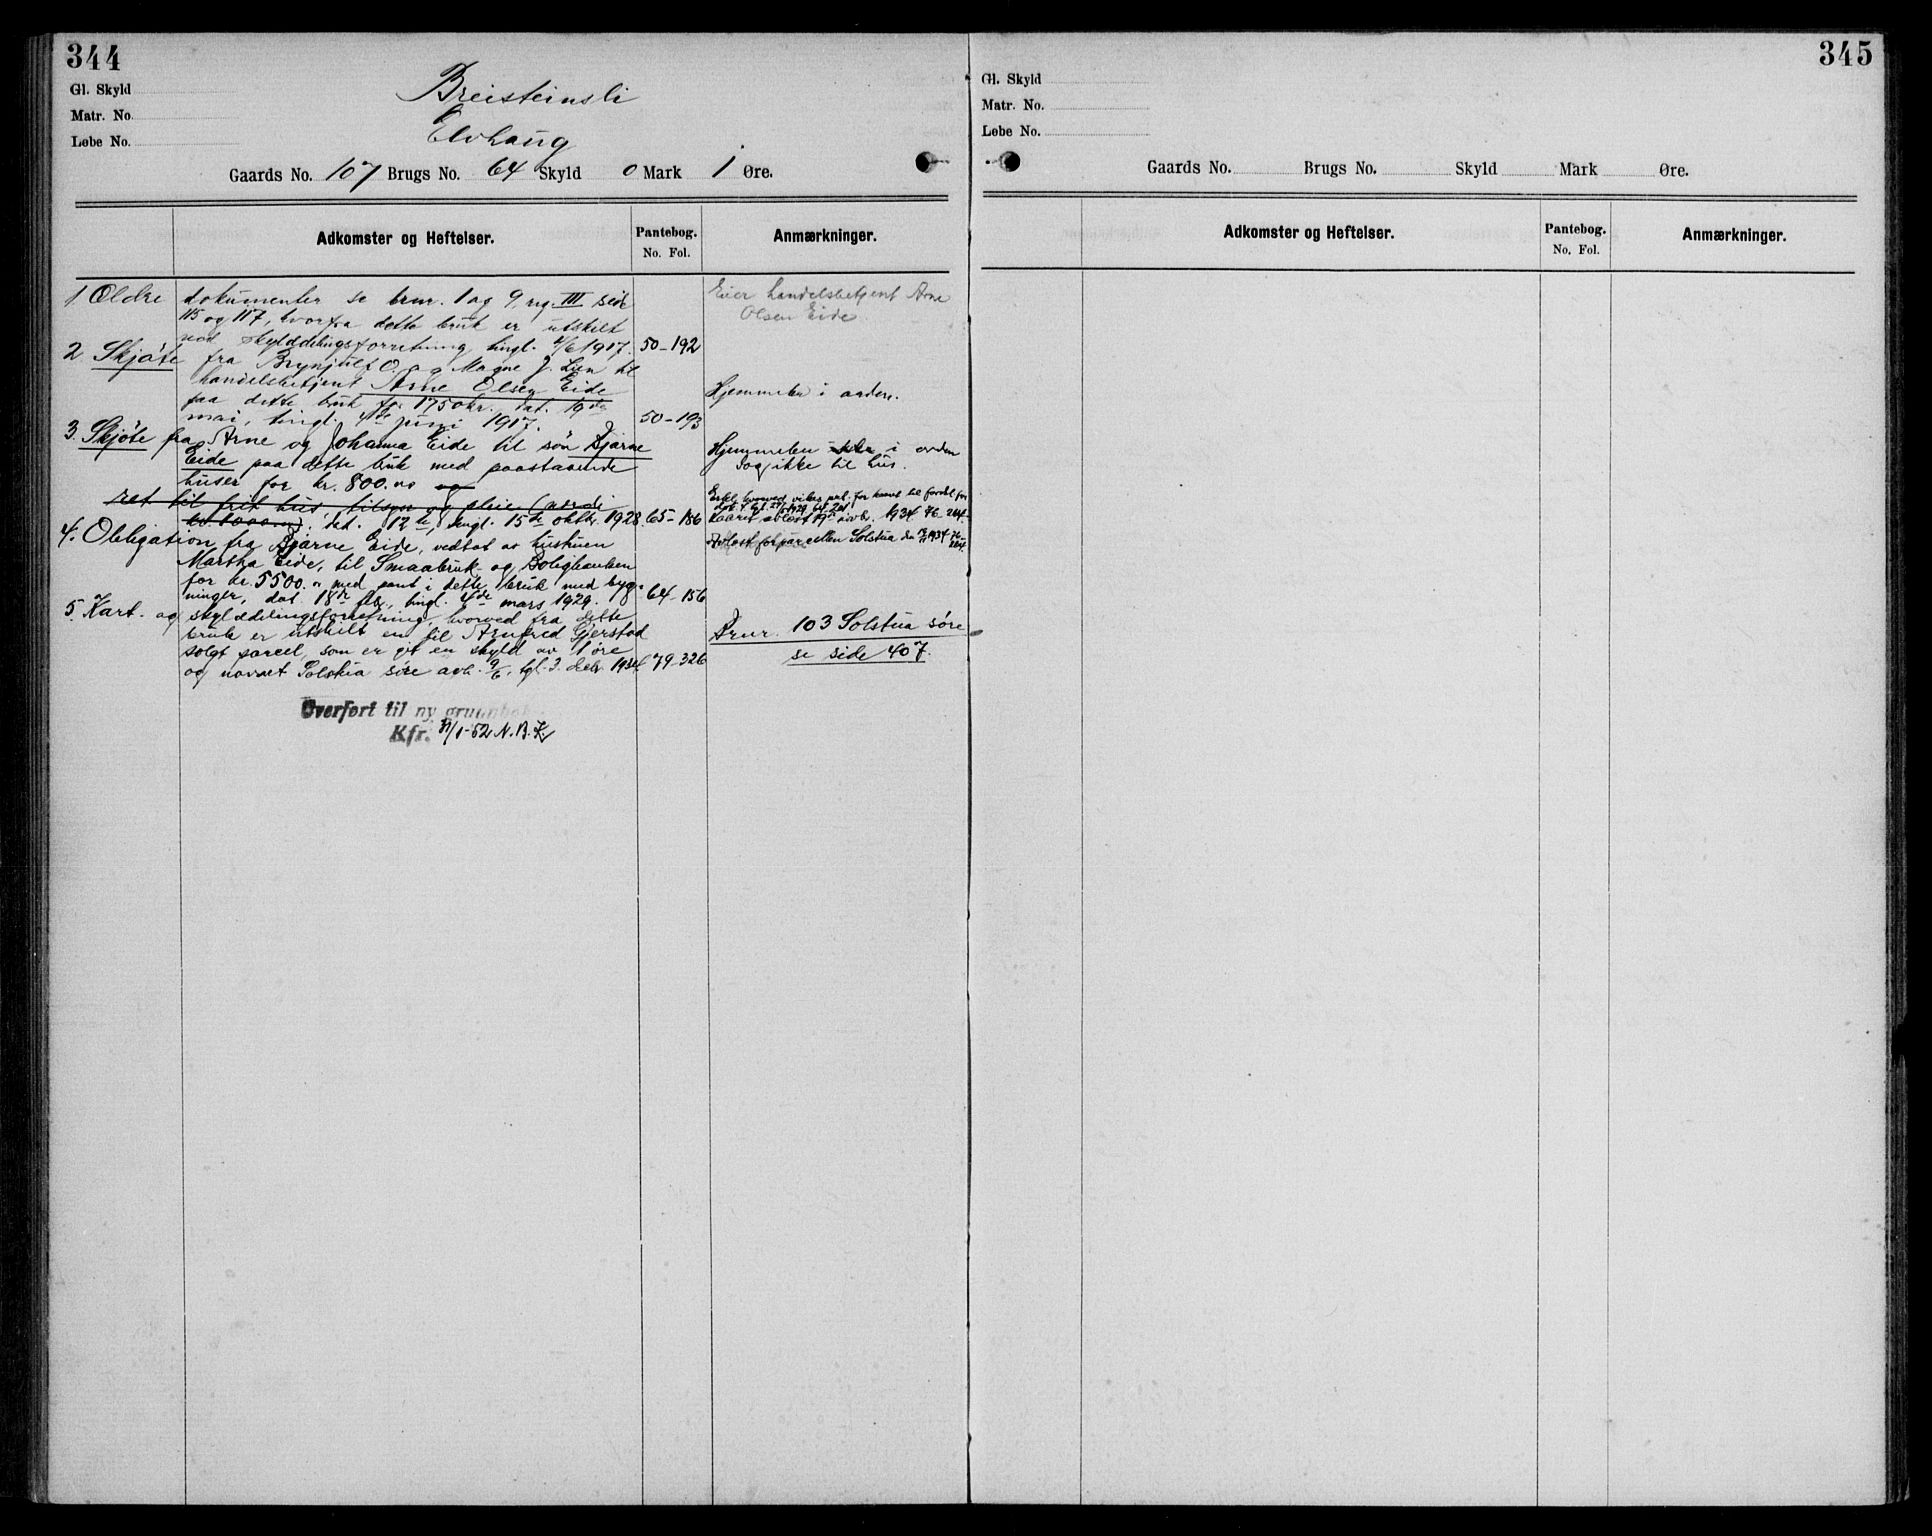 344
Gl. Skyld
Matr. No.
Løbe No.
Breisteinsli
Elvhaug
Gaards No. 107 Brugs No. 64 Skyld 0 Mark 1 Øre.
Adkomster og Heftelser.
Pantebog.
No. Fol.
Anmærkninger.
1 Eldre dokumenter se brnr. 1 og 9, reg. III side
115 og 117, hvorfra dette bruk er utskilt
ved skylddelingsforretning, tingl. 4/6 1917. 50-192
Eier handelsbetjent Arne
Olsen Eide.
2 Skjøte fra Brynjulf O. og Magne J. Lien til
handelsbetjent Arne Olsen Eide
paa dette bruk for 1750 kr. dat. 19de
mai, tingl. 4de juni 1917. 50-193
Hjemmelen i orden.
3. Skjøte fra Arne og Johanna Eide til søn Bjarne
Eide paa dette bruk med paastaaende
huser for kr. 800.00 og
ret til frit hus, tilsyn og pleie (værdi
kr. 1000.00). dat. 12te, tingl. 15de oktbr. 1928. 65-186
Hjemmelen i orden
dog ikke til hus.
Erkl. hvorved vikes prt. for kaaret til fordel for
dok. 4 tgl. 1929 64
Kaaret avløst 19 novbr. 1934 76-264
4. Obligation fra Bjarne Eide, vedtat av hustruen
Martha Eide, til Smaabruk- og Boligbanken
for kr. 5500.00 med pant i dette bruk med byg-
ninger, dat 18de feb., tingl. 4de mars 1929. 64-156
Avløst for parcellen Solstua den 1934 76-
264
5. Kart- og skylddelingsforretning, hvorved fra dette
bruk er utskilt en til Arnfred Gjerstad
solgt parcel, som er git en skyld av 1 øre
og navnet Solstua søre avh. 9/6, tgl. 3. debr. 1934 79-326
Brnr. 103 Solstua søre
se side 407.
Overført til ny grunnbok
Kfr. 31/1-52 N.B.K.
345
Gl. Skyld
Matr. No.
Løbe No.
Gaards No. Brugs No. Skyld Mark Øre.
Adkomster og Heftelser.
Pantebog.
No. Fol.
Anmærkninger.